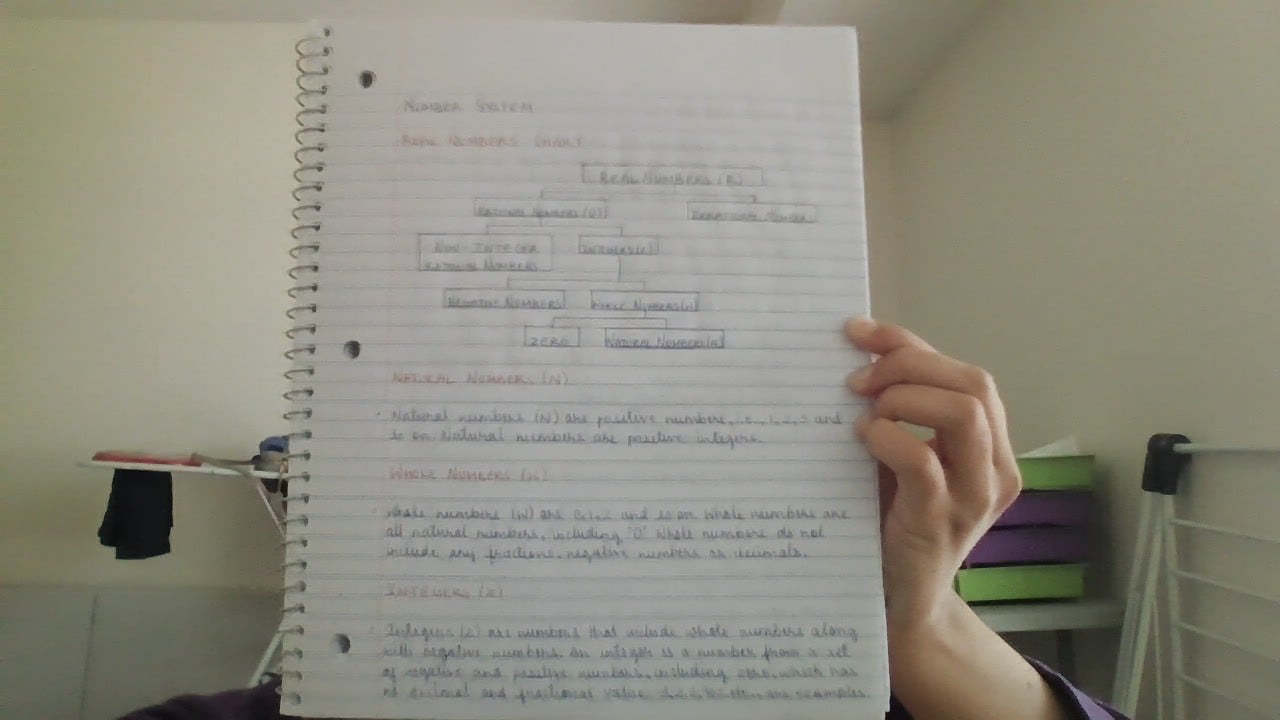 NUMBER SYSTEM
REAL NUMBERS CHART
REAL NUMBERS (R)
RATIONAL NUMBERS (Q)
IRRATIONAL NUMBER
NON-INTEGER
RATIONAL NUMBERS
INTEGERS (Z)
NEGATIVE NUMBERS
WHOLE NUMBERS (W)
ZERO
NATURAL NUMBERS (N)
NATURAL NUMBER (N)
• Natural numbers (N) are positive numbers, i.e., 1, 2, 3 and
so on. Natural numbers are positive integers.
WHOLE NUMBERS (W)
• Whole numbers (W) are 0, 1, 2 and so on. Whole numbers are
all natural numbers, including '0'. Whole numbers do not
include any fractions, negative numbers or decimals.
INTEGERS (Z)
• Integers (Z) are numbers that include whole numbers along
with negative numbers. An integer is a number from a set
of negative and positive numbers, including zero, which has
no decimal and fractional value. are examples.